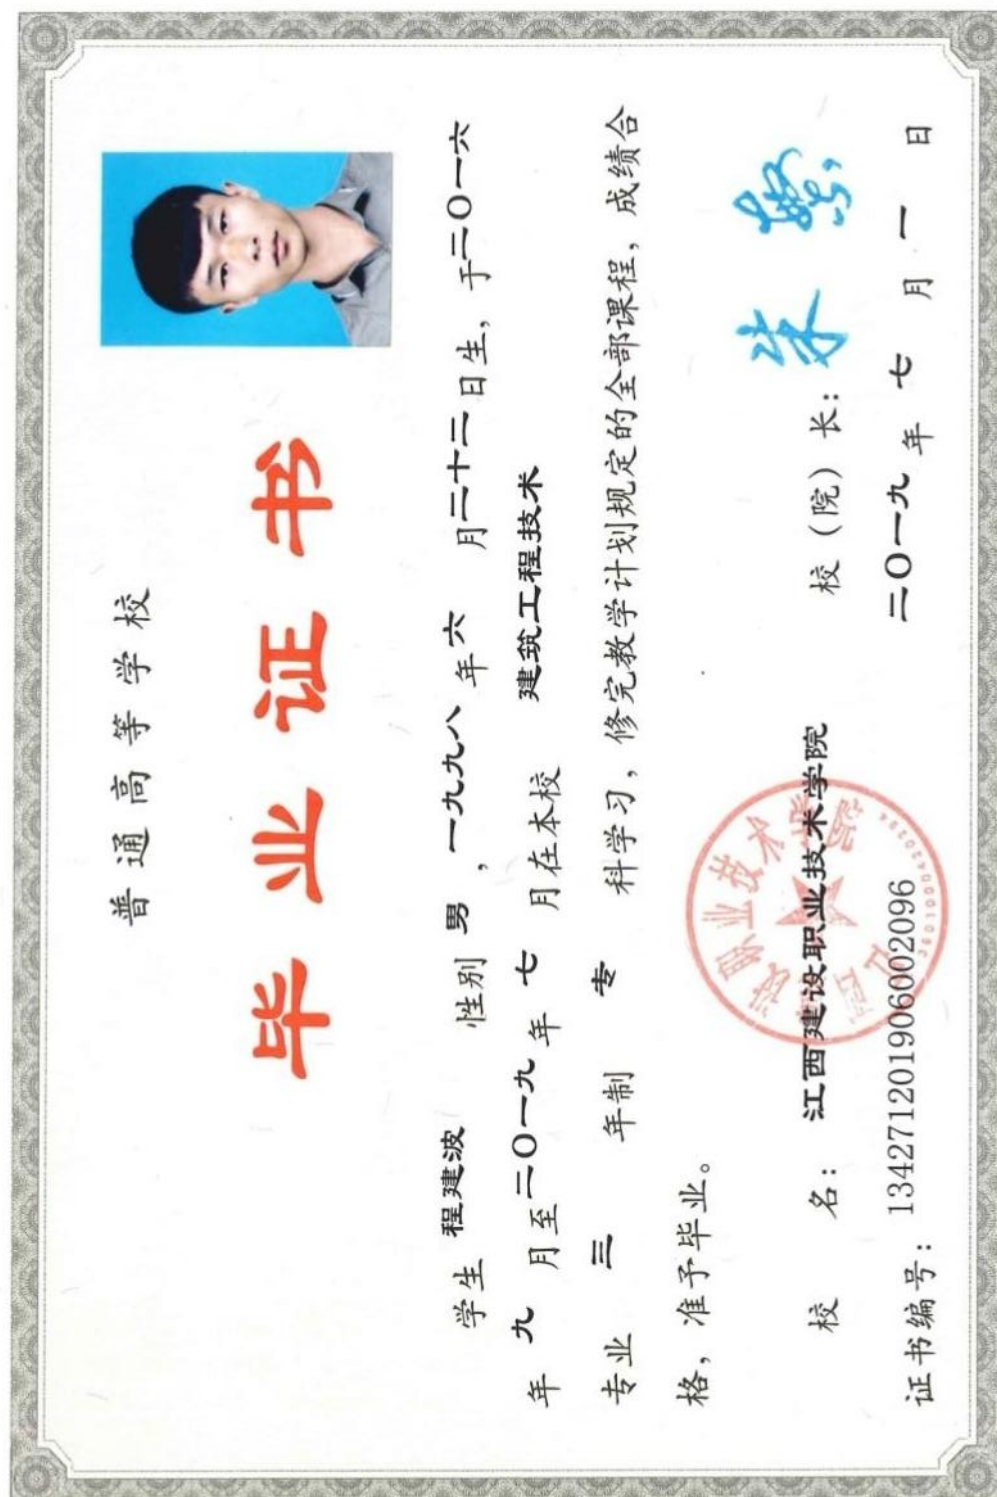 普通高等学校
毕业证书
学生 程建波 性别 男 ，一九九八 年 六 月二十二日生，于二〇一六
年 九 月至二〇一九年 七 月在本校 建筑工程技术
专业 三 年制 专 科学习，修完教学计划规定的全部课程，成绩合
格，准予毕业。
校 名： 江西建设职业技术学院 校（院）长： 朱
证书编号： 134271201906002096 二〇一九 年 七 月 一 日